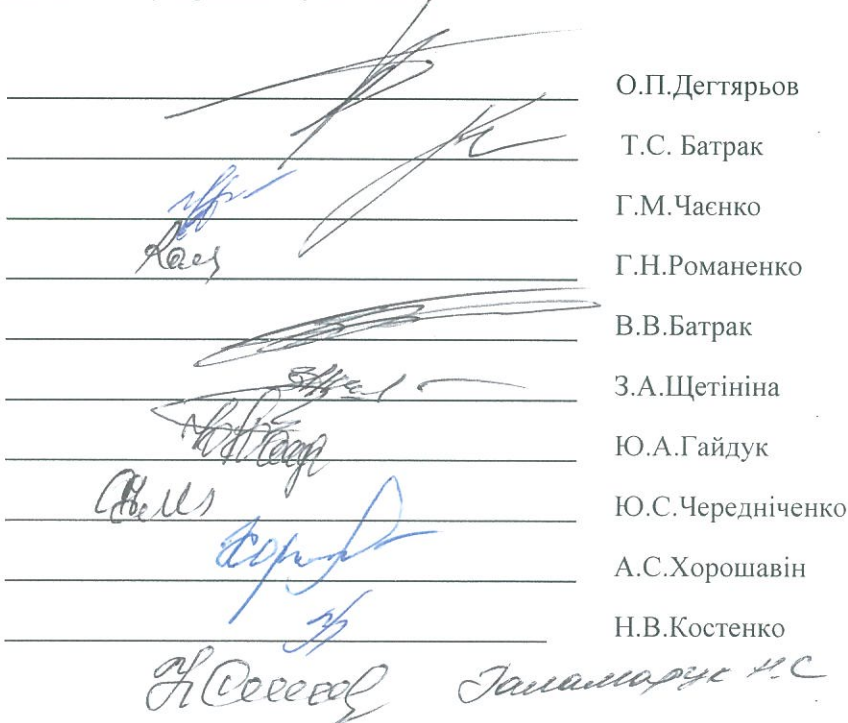 О.П.Дегтярьов
Т.С. Батрак
Г.М.Чаєнко
Г.Н.Романенко
В.В.Батрак
З.А.Щетініна
Ю.А.Гайдук
Ю.С.Чередніченко
А.С.Хорошавін
Н.В.Костенко
Паламарук Н.С